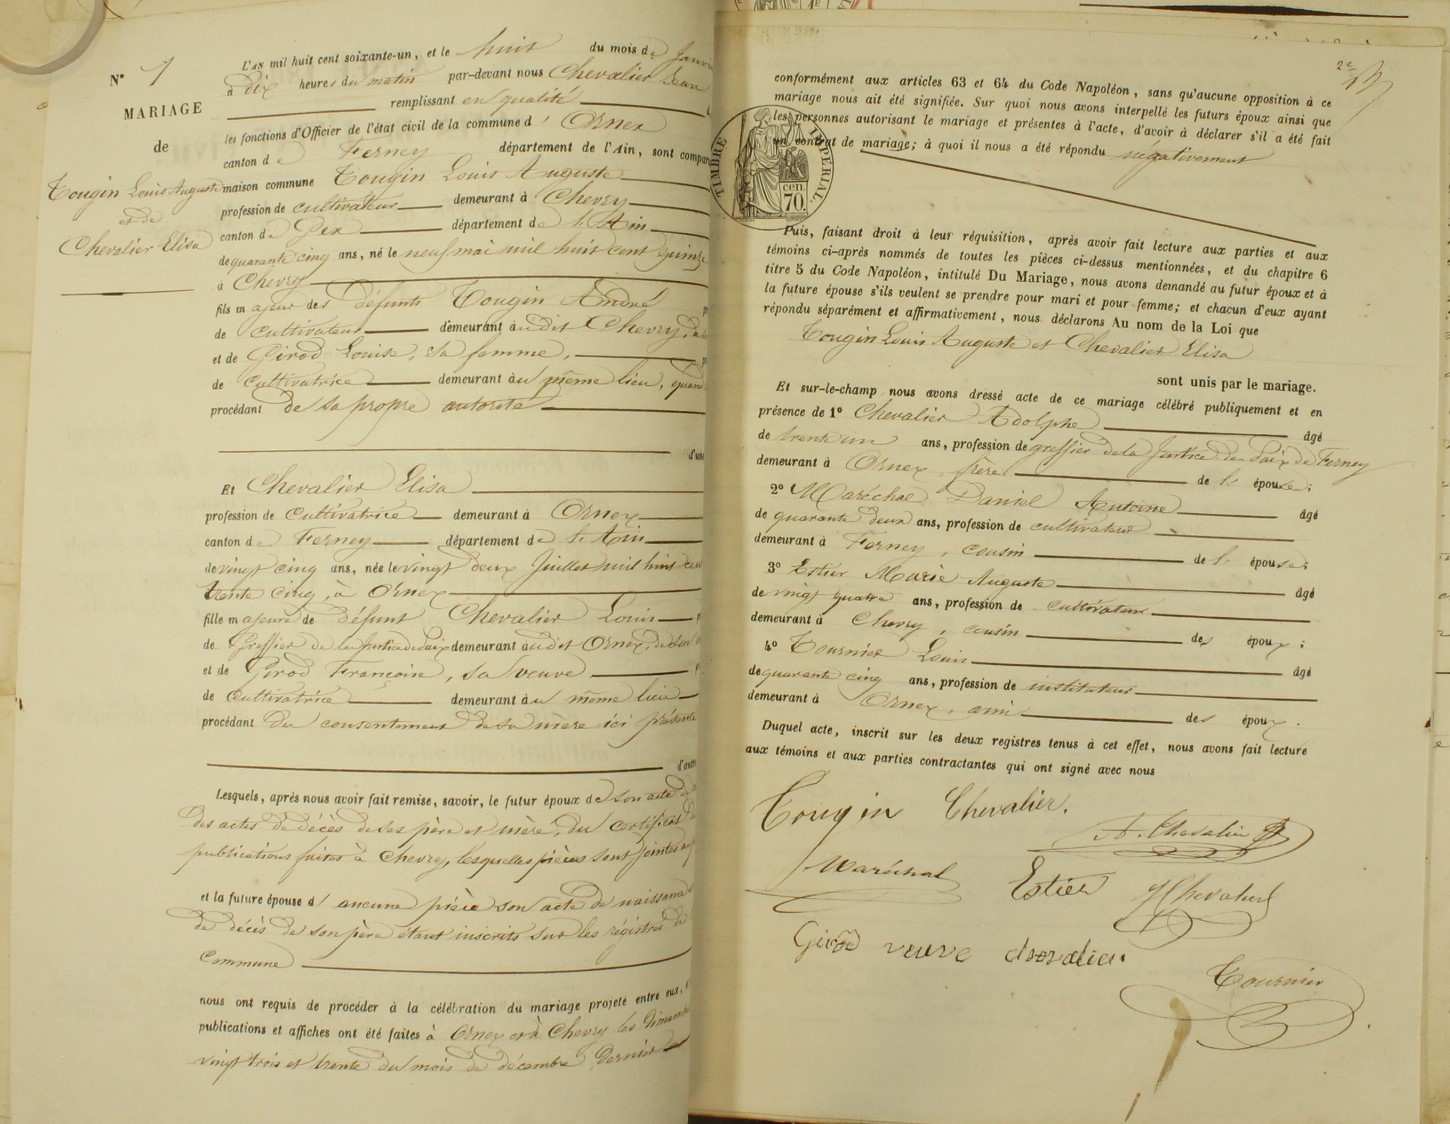 N° 1
MARIAGE
de
Tougin Louis Auguste
et de
Chevalier Elisa
L'AN mil huit cent soixante-un, et le huit du mois de Janv
à dix heures du matin par-devant nous Chevalier Jean
remplissant en qualité
les fonctions d'Officier de l'état civil de la commune d' Ornex
canton de Ferney département de l'Ain, sont compar
maison commune Tougin Louis Auguste
profession de cultivateur demeurant à Chevry
canton de Gex département de l'Ain
de quarante cinq ans, né le neuf mai mil huit cent quinze
à Chevry
fils majeur des défunts Tougin André
de cultivateur demeurant audit Chevry,
et de Girod Louise, sa femme,
de cultivatrice demeurant au même lieu, quand
procédant de sa propre autorité
d'une
Et Chevalier Elisa
profession de cultivatrice demeurant à Ornex
canton de Ferney département de l'Ain
de vingt cinq ans, née le vingt deux Juillet mil huit cen
trente cinq, à Ornex
fille majeure de défunt Chevalier Louis
de Greffier de la Justice de paix demeurant audit Ornex, de son
et de Girod Françoise, sa veuve
de cultivatrice demeurant au même lieu
procédant du consentement de sa mère ici présente
d'autre
Lesquels, après nous avoir fait remise, savoir, le futur époux de son acte de
des actes de décès de ses père et mère, du certificat de
publications faites à Chevry, lesquelles pièces sont jointes au
et la future épouse d' aucune pièce son acte de naissance
de décès de son père étant inscrits sur les régistres de
Commune
nous ont requis de procéder à la célébration du mariage projeté entre eux,
publications et affiches ont été faites à Ornex et à Chevry les Dimanches
vingt trois et trente du mois de décembre dernier
conformément aux articles 63 et 64 du Code Napoléon, sans qu'aucune opposition à ce
mariage nous ait été signifiée. Sur quoi nous avons interpellé les futurs époux ainsi que
les personnes autorisant le mariage et présentes à l'acte, d'avoir à déclarer s'il a été fait
un contrat de mariage; à quoi il nous a été répondu négativement
TIMBRE IMPERIAL
cen.
70.
Puis, faisant droit à leur réquisition, après avoir fait lecture aux parties et aux
témoins ci-après nommés de toutes les pièces ci-dessus mentionnées, et du chapitre 6
titre 5 du Code Napoléon, intitulé Du Mariage, nous avons demandé au futur époux et à
la future épouse s'ils veulent se prendre pour mari et pour femme; et chacun d'eux ayant
répondu séparément et affirmativement, nous déclarons Au nom de la Loi que
Tougin Louis Auguste et Chevalier Elisa
sont unis par le mariage.
Et sur-le-champ nous avons dressé acte de ce mariage célébré publiquement et en
présence de 1° Chevalier Adolphe âgé
de trente un ans, profession de greffier de la Justice de Paix de Ferney
demeurant à Ornex, frère de l' épouse;
2° Maréchal Daniel Antoine âgé
de quarante deux ans, profession de cultivateur
demeurant à Ferney, cousin de l' épouse;
3° Estier Marie Auguste âgé
de vingt quatre ans, profession de cultivateur
demeurant à Chevry, cousin des époux;
4° Tournier Louis âgé
de quarante cinq ans, profession de instituteur
demeurant à Ornex, ami des époux.
Duquel acte, inscrit sur les deux registres tenus à cet effet, nous avons fait lecture
aux témoins et aux parties contractantes qui ont signé avec nous
Tougin Chevalier.
A. Chevalier
Maréchal Estier Chevalier
Girod veuve chevalier
Tournier